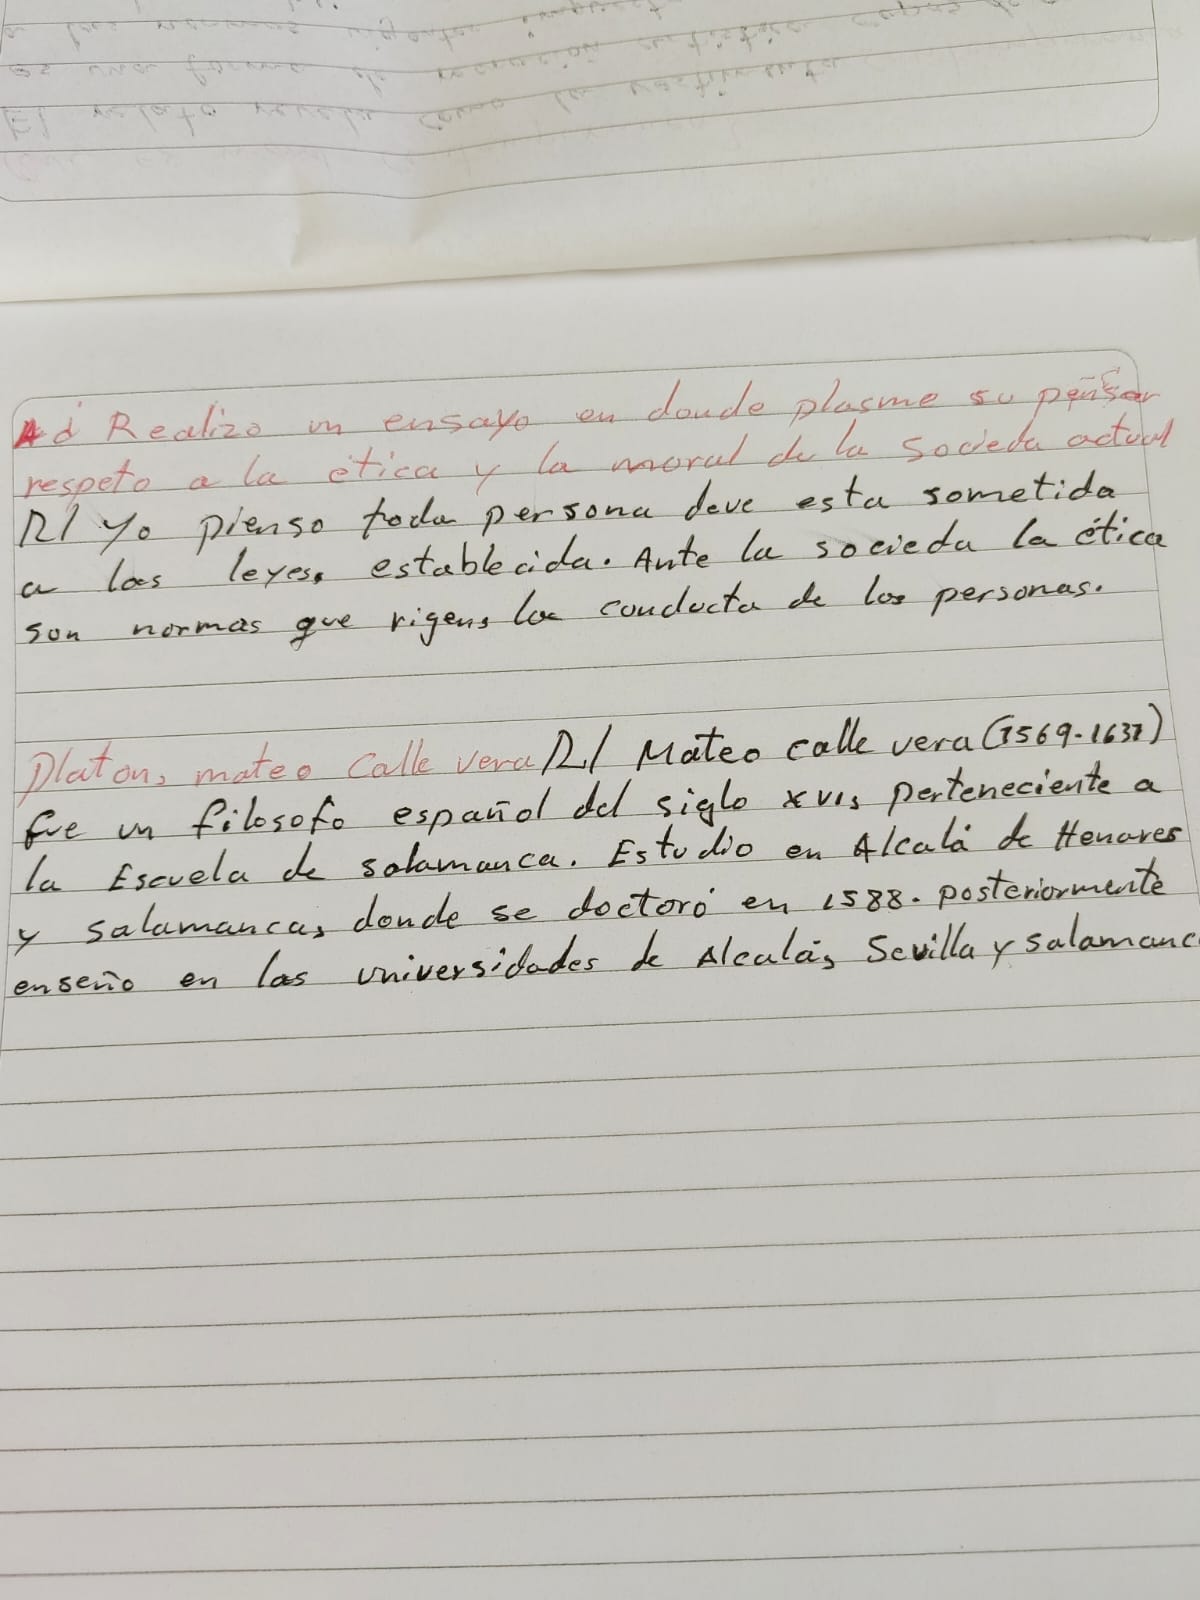 Ad Realizo un ensayo en donde plasme su pensar
respeto a la ética y la moral de la socieda actual
R/ Yo pienso toda persona deve esta sometida
a las leyes, establecida. Ante la socieda la ética
son normas que rigens la conducta de las personas.
Platon, mateo Calle vera R/ Mateo calle vera (1569-1631)
fue un filosofo español del siglo XVI, perteneciente a
la Escuela de salamanca. Estudio en Alcalá de Henares
y salamanca, donde se doctoró en 1588. posteriormente
enseño en las universidades de Alcalá, Sevilla y salamanc